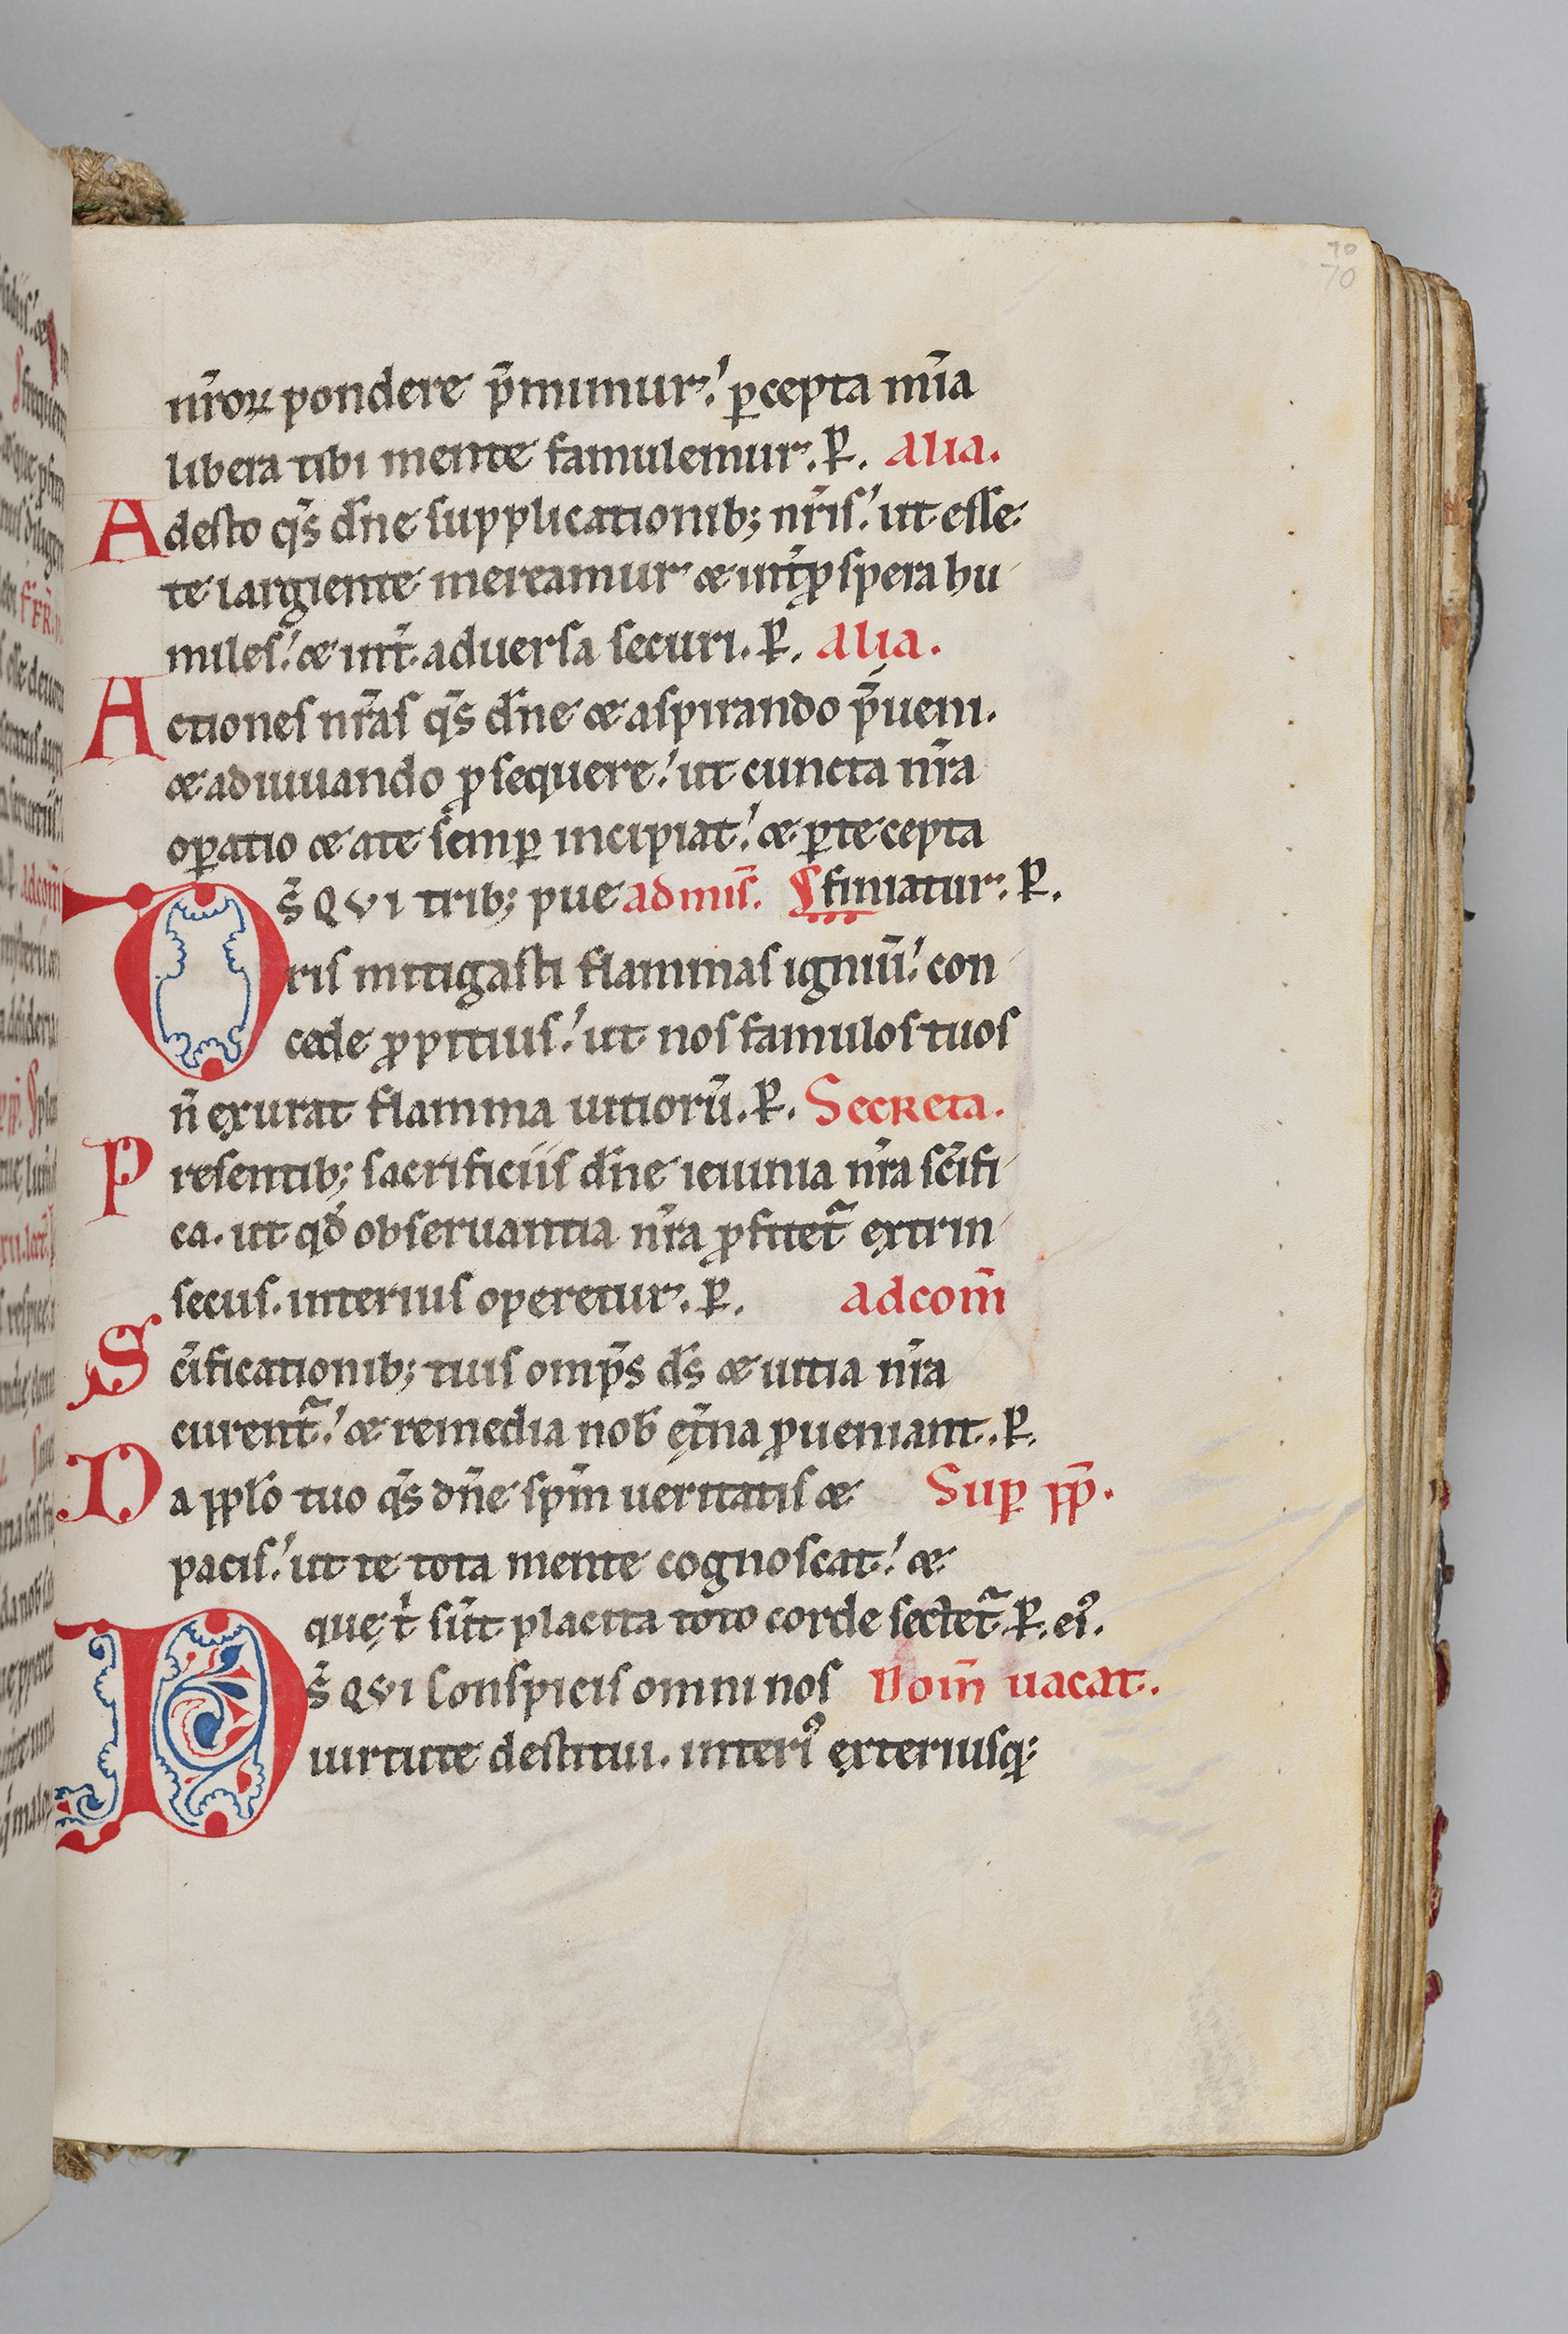 70
70
nr̄oꝝ pondere p̄mimur.' ꝑcepta mīa
libera tibi mente famulemur. P̲. Alia.
Adesto qs̄ dn̄e supplicationib; nr̄is.' ut esse
te largiente mereamur & int̄ ꝓspera hu
miles.' & int̄ aduersa securi. P̲. Alia.
Actiones nr̄as qs̄ dn̄e & aspirando p̄ueni.
& adiuuando ꝓsequere.' ut cuncta nr̄a
oꝑatio & ate semꝑ incipiat.' & ꝑte cepta
DS̄ QVI trib; pue ad mis̄. finiatur. P̲.
ris mitigasti flammas igniū.' con
cede ꝓpitius.' ut nos famulos tuos
n̄ exurat flamma uitiorū. P̲. Secreta.
Presentib; sacrificiis dn̄e ieiunia nr̄a sc̄ifi
ca. ut qd̄ obseruantia nr̄a ꝓfitet᷑ extrin
secus. interius operetur. P̲. ad com̄
Sc̄ificationib; tuis omp̄s ds̄ & uitia nr̄a
curent᷑.' & remedia nob̄ ęt̄na ꝓueniant. P̲.
Da pplo̅ tuo qs̄ dn̄e spm̄ ueritatis & Suꝑ pp̄.
pacis.' ut te tota mente cognoscat.' &
que t̄ sūt placita toto corde sectet᷑. P̲. eꝰ.
DS̄ QVI Conspicis omni nos Dom̄ uacat.
uirtute destitui. interiꝰ exteriusq;